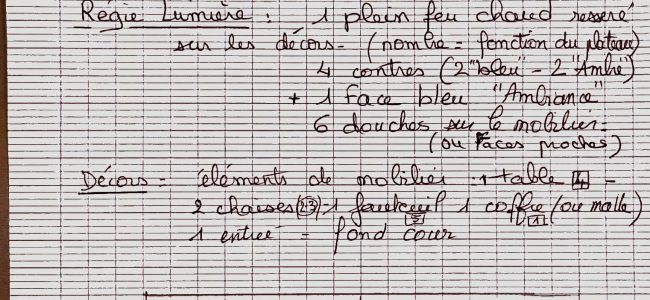 Régie Lumière : 1 plein feu chaud resseré
sur les décors - (nombre = fonction du plateau)
4 contres (2 "bleu" - 2 "Ambré")
+ 1 face bleu "Ambiance"
6 douches sur le mobilier -
(ou Faces proches)
Décors = éléments de mobilier : 1 table 4 -
2 chaises (23) - 1 fauteuil 1 coffre (ou malle)
1
1 entrée = fond cour